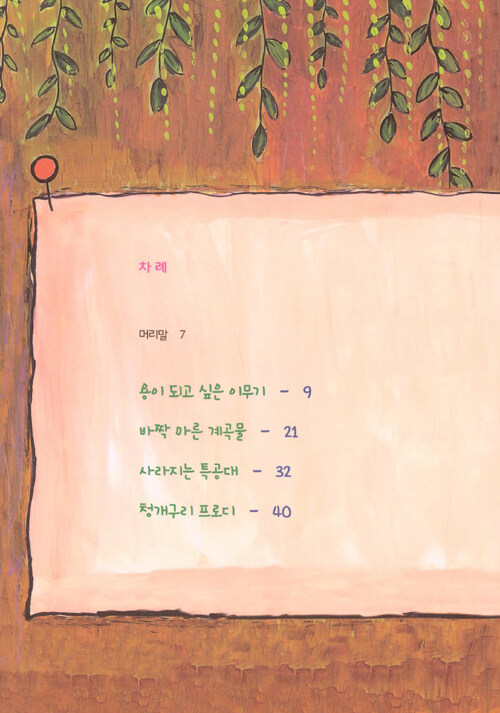 차례
머리말 7
용이 되고 싶은 이무기 - 9
바짝 마른 계곡물 - 21
사라지는 특공대 - 32
청개구리 프로디 - 40